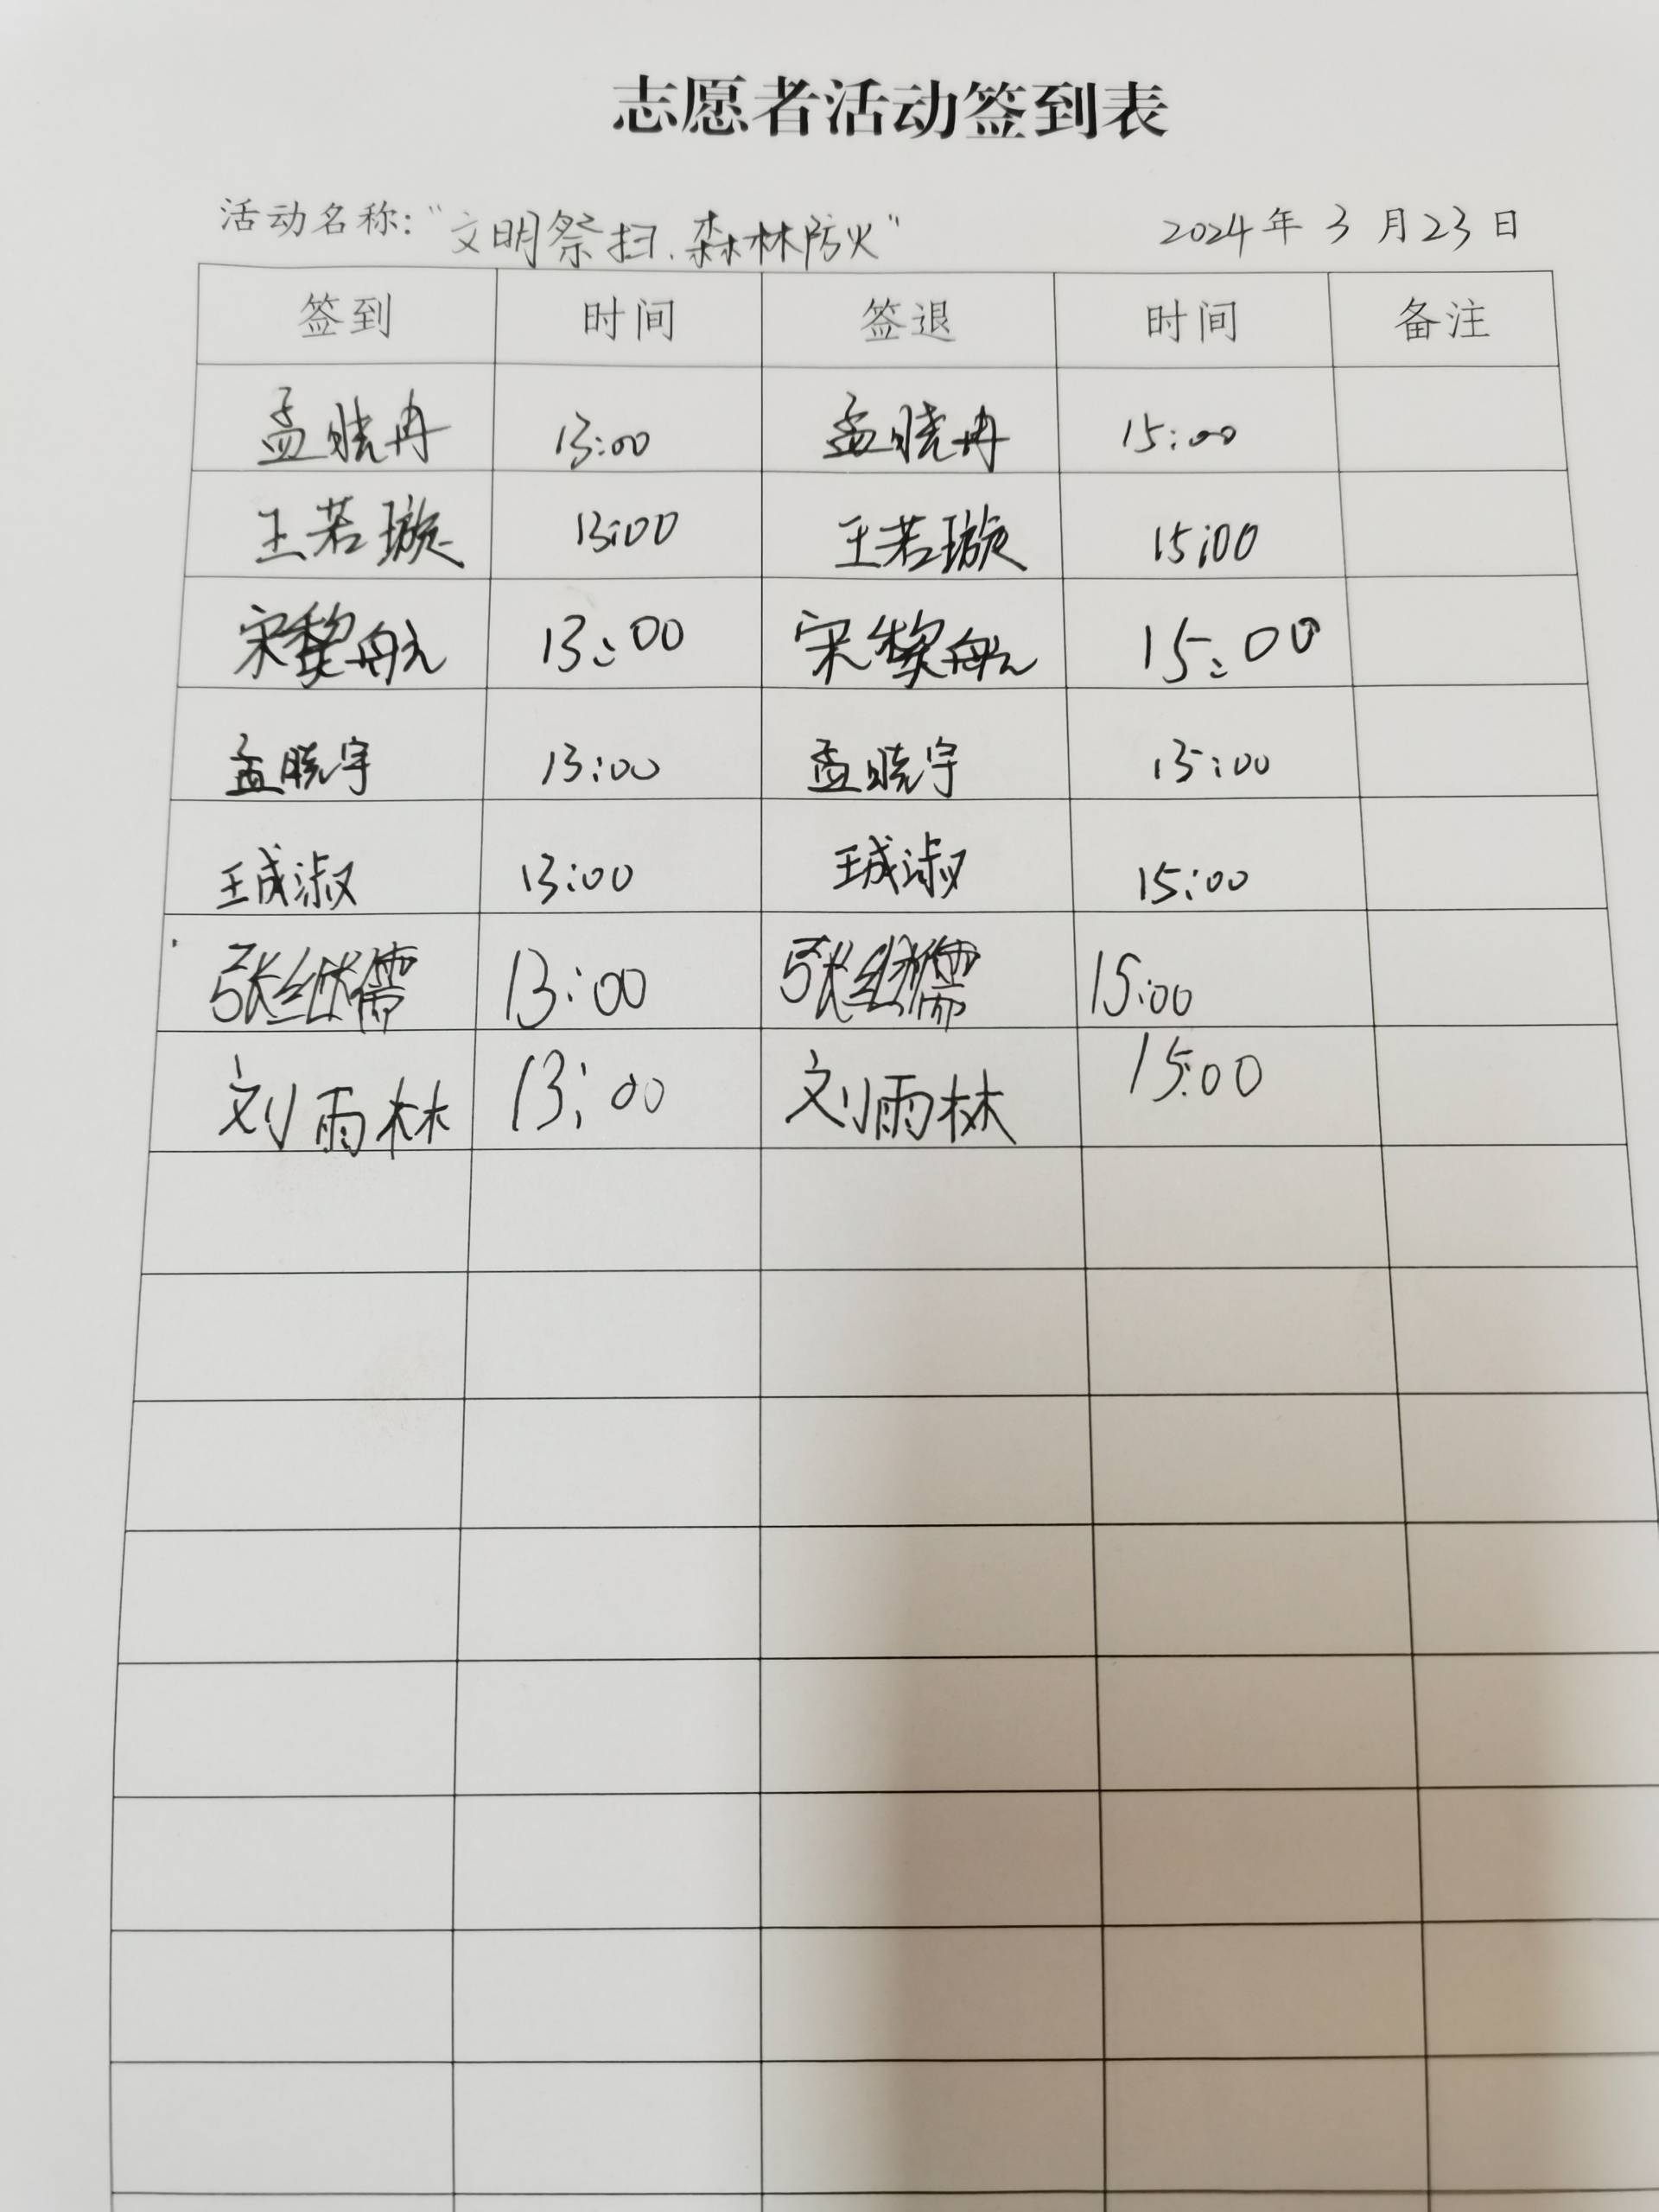 志愿者活动签到表
活动名称：“文明祭扫、森林防火” 2024年3月23日
签到 时间 签退 时间 备注
孟晓冉 13:00 孟晓冉 15:00
王若璇 13:00 王若璇 15:00
宋黎航 13:00 宋黎航 15:00
孟晓宇 13:00 孟晓宇 15:00
13:00 15:00
张继儒 13:00 张继儒 15:00
刘雨林 13:00 刘雨林 15:00